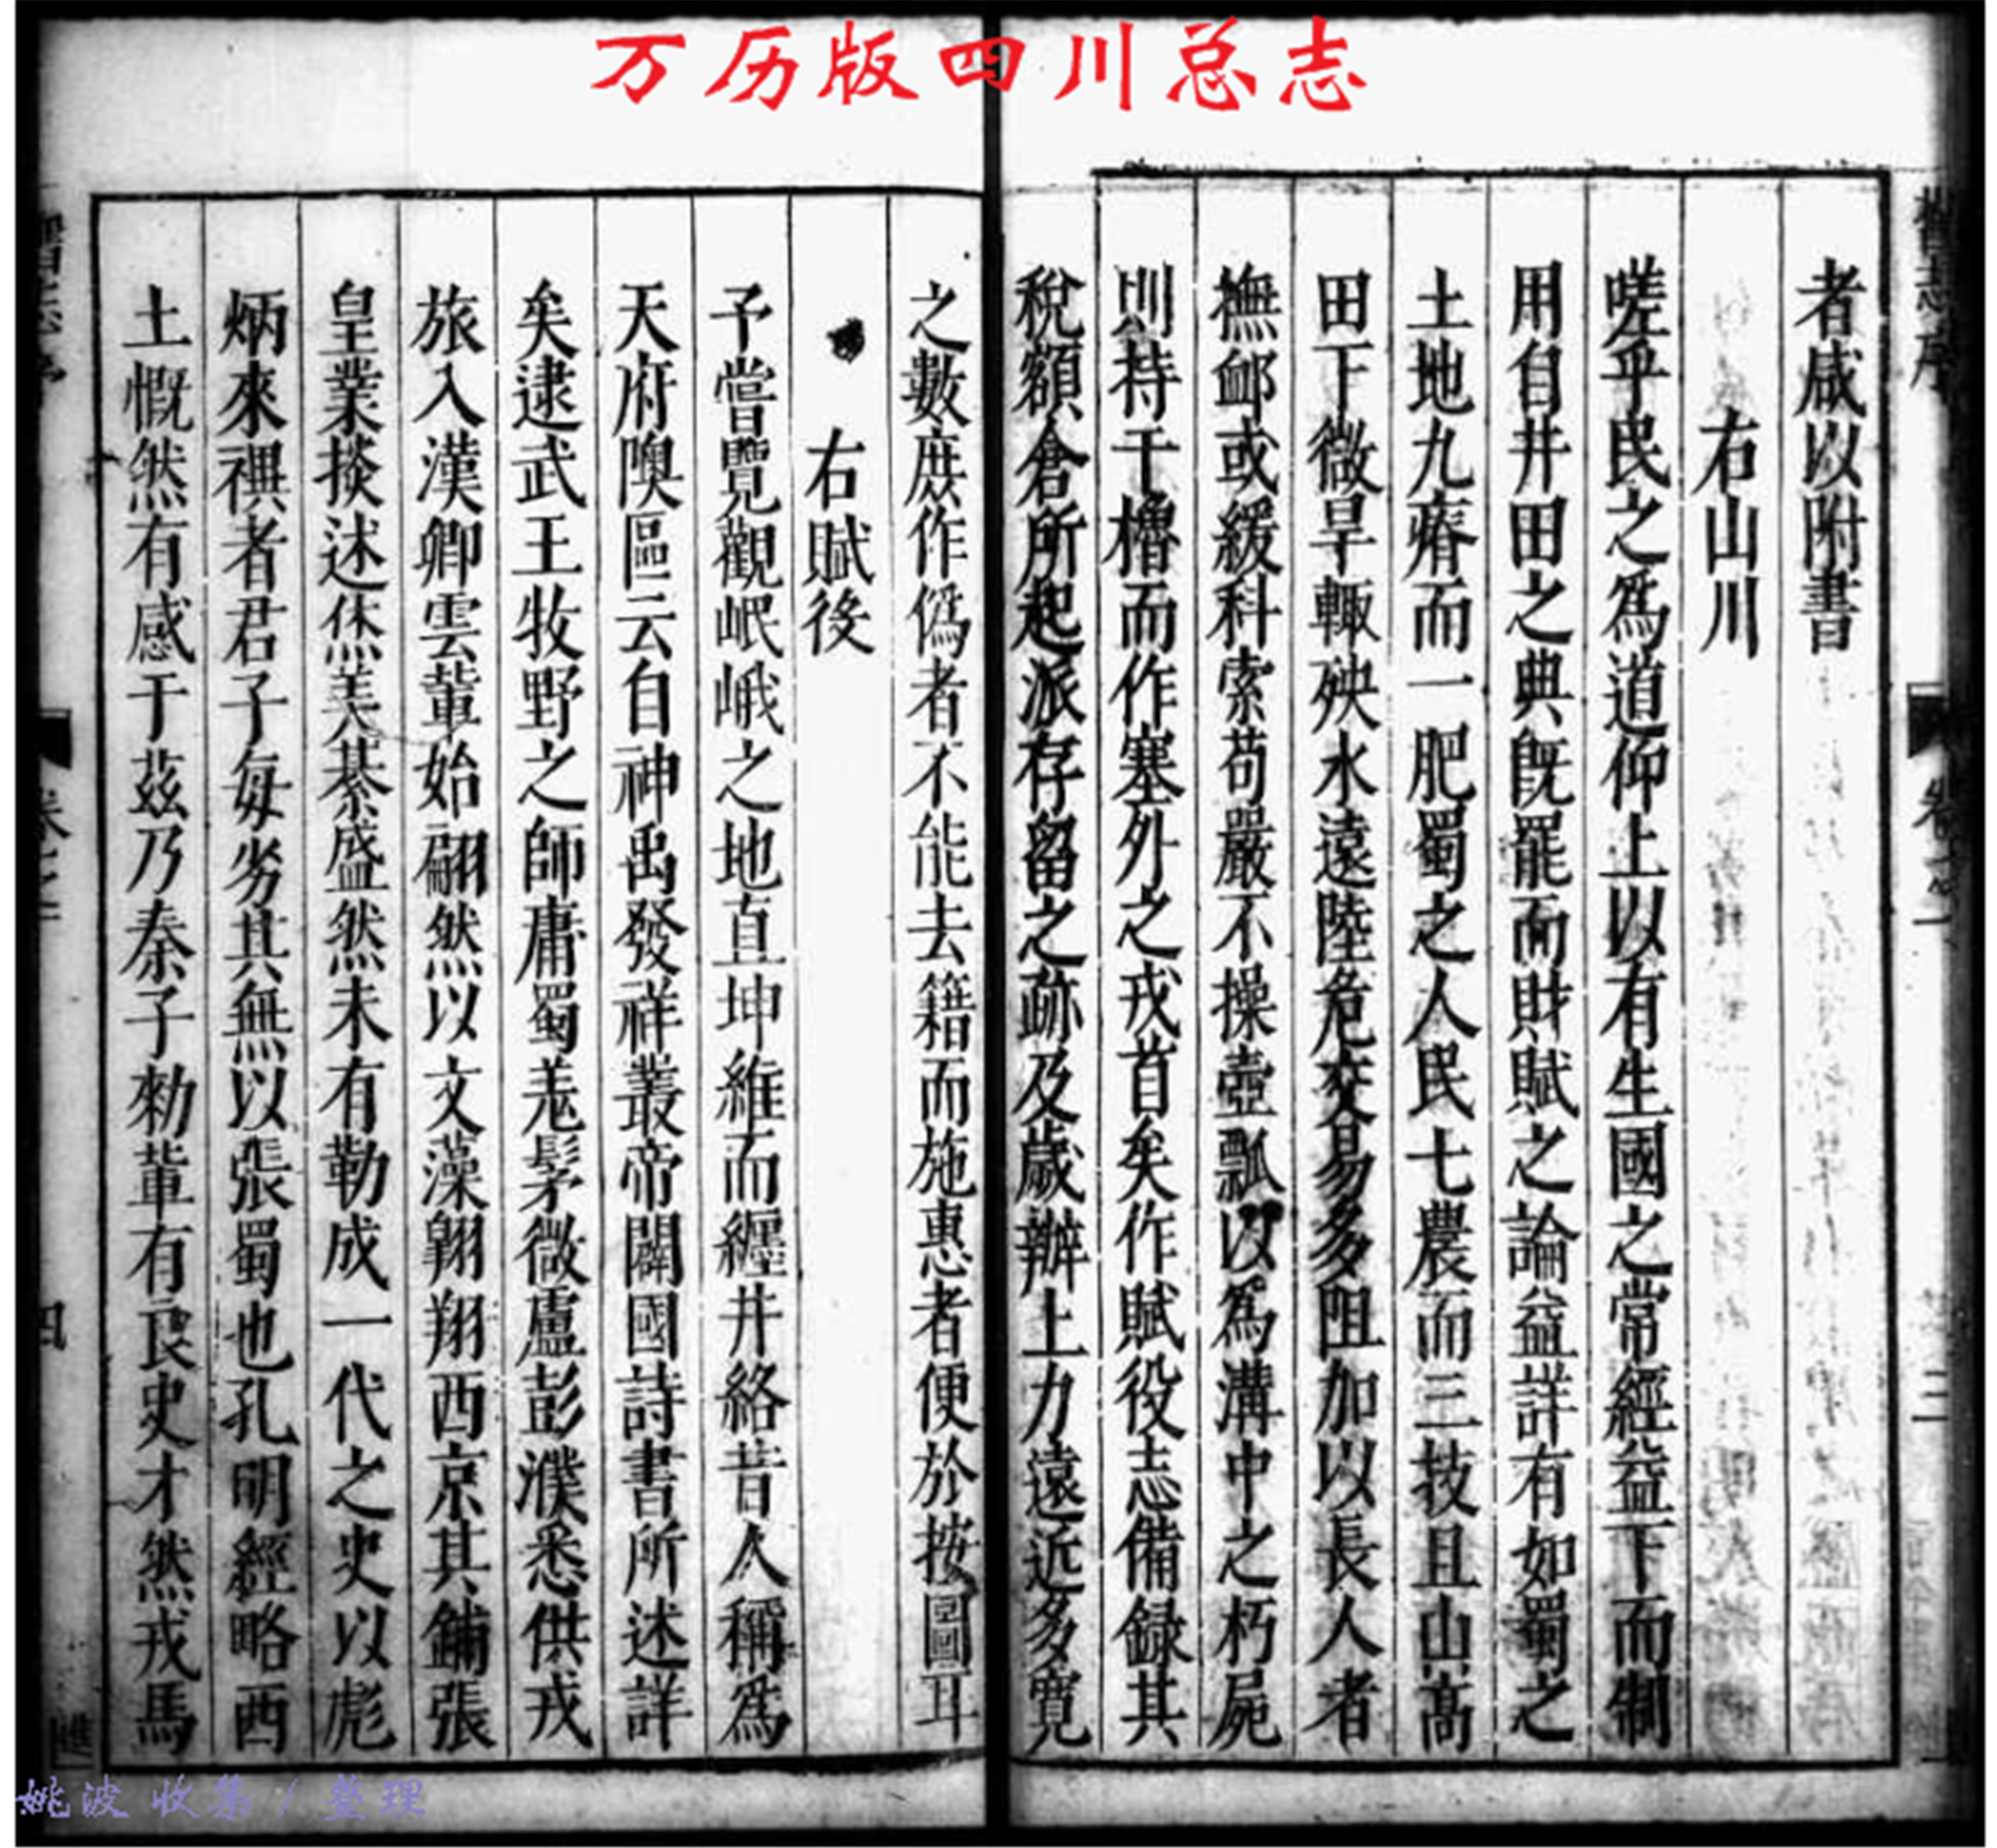 万历版四川总志
者咸以附書
右山川
嗟乎民之爲道仰上以有生國之常經益下而制
用自井田之典旣罷而財賦之論益詳有如蜀之
土地九瘠而一肥蜀之人民七農而三技且山高
田下微旱輙殃水遠陸危交易多阻加以長人者
撫卹或緩科索苟嚴不操壺瓢以爲溝中之朽屍
則持干櫓而作塞外之戎首矣作賦役志備録其
稅額倉所起派存留之跡及歲辦土力遠近多寛
之數庶作僞者不能去籍而施惠者便於按圖耳
右賦後
予嘗覽觀岷峨之地直坤維而纒井絡昔人稱爲
天府隩區云自神禹發祥叢帝闢國詩書所述詳
矣逮武王牧野之師庸蜀羌髳微盧彭濮悉供戎
旅入漢卿雲輩始翩然以文藻翱翔西京其鋪張
皇業掞述休美綦盛然未有勒成一代之史以彪
炳來禩者君子每劣其無以張蜀也孔明經略西
土慨然有感于茲乃秦子勑輩有良史才然戎馬
舊志序
卷之
四
二
姚波 收集 / 整理